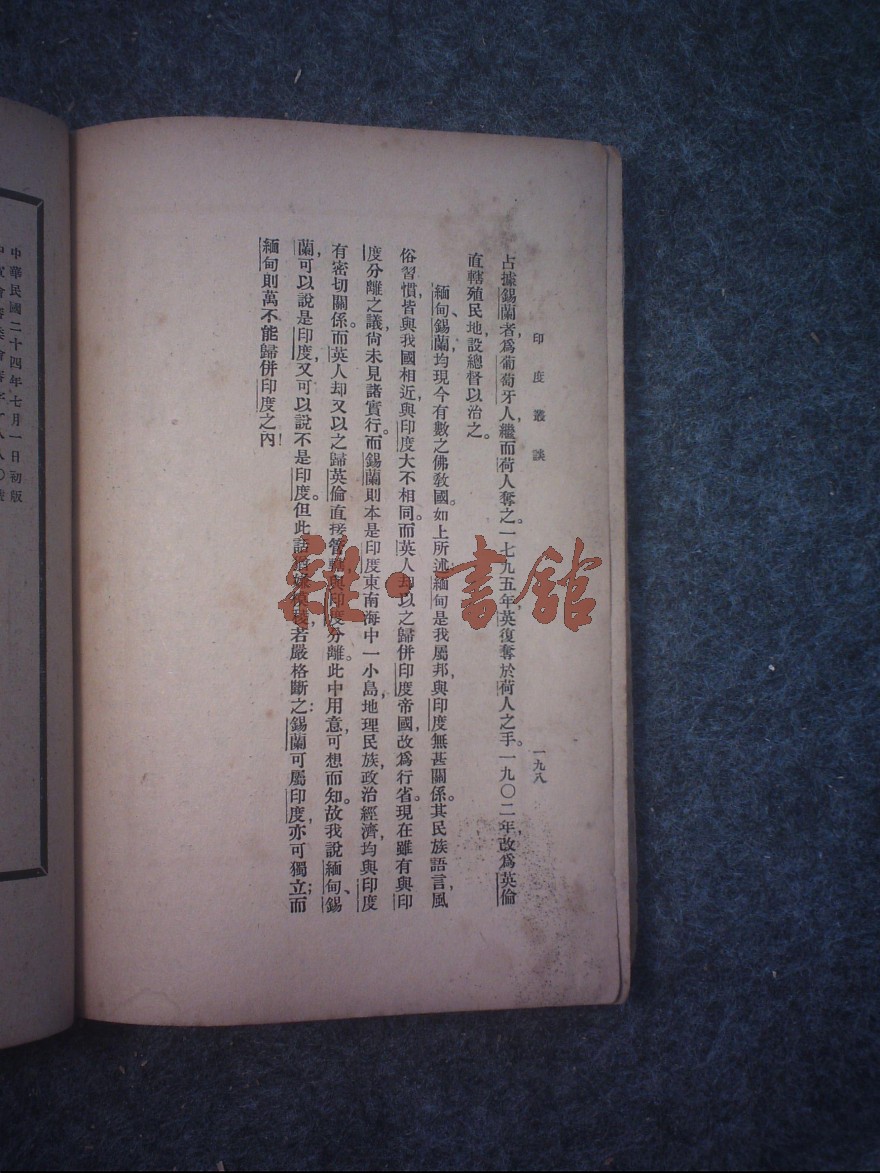 印度叢談
一九八
占據錫蘭者為葡萄牙人，繼而荷人奪之。一七九五年，英復奪於荷人之手。一九〇二年，改為英倫
直轄殖民地，設總督以治之。
緬甸、錫蘭，均現今有數之佛教國。如上所述，緬甸是我屬邦，與印度無甚關係。其民族語言，風
俗習慣，皆與我國相近，與印度大不相同。而英人却以之歸併印度帝國，改為行省。現在雖有與印
度分離之議，尚未見諸實行。而錫蘭則本是印度東南海中一小島，地理民族，政治經濟，均與印度
有密切關係。而英人却又以之歸英倫直接管轄，與印度分離。此中用意，可想而知。故我說緬甸、錫
蘭，可以說是印度，又可以說不是印度。但此話，若嚴格斷之：錫蘭可屬印度，亦可獨立；而
緬甸則萬不能歸併印度之內！
中華民國二十四年七月一日初版
雜·書館